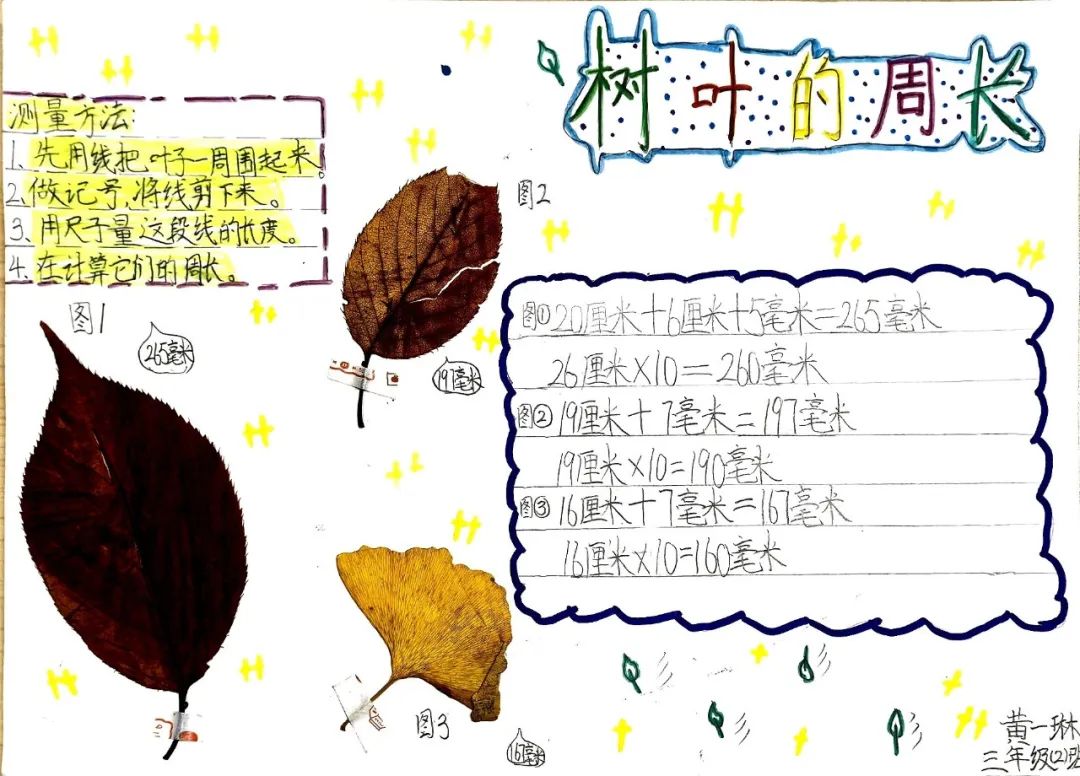 树叶的周长
测量方法:
1、先用线把叶子一周围起来。
2、做记号,将线剪下来。
3、用尺子量这段线的长度。
4、在计算它们的周长。
图1
265毫米
图2
197毫米
图①20厘米+6厘米+5毫米=265毫米
26厘米×10=260毫米
图②19厘米+7毫米=197毫米
19厘米×10=190毫米
图③16厘米+7毫米=167毫米
16厘米×10=160毫米
图3
黄一琳
三年级(2)班